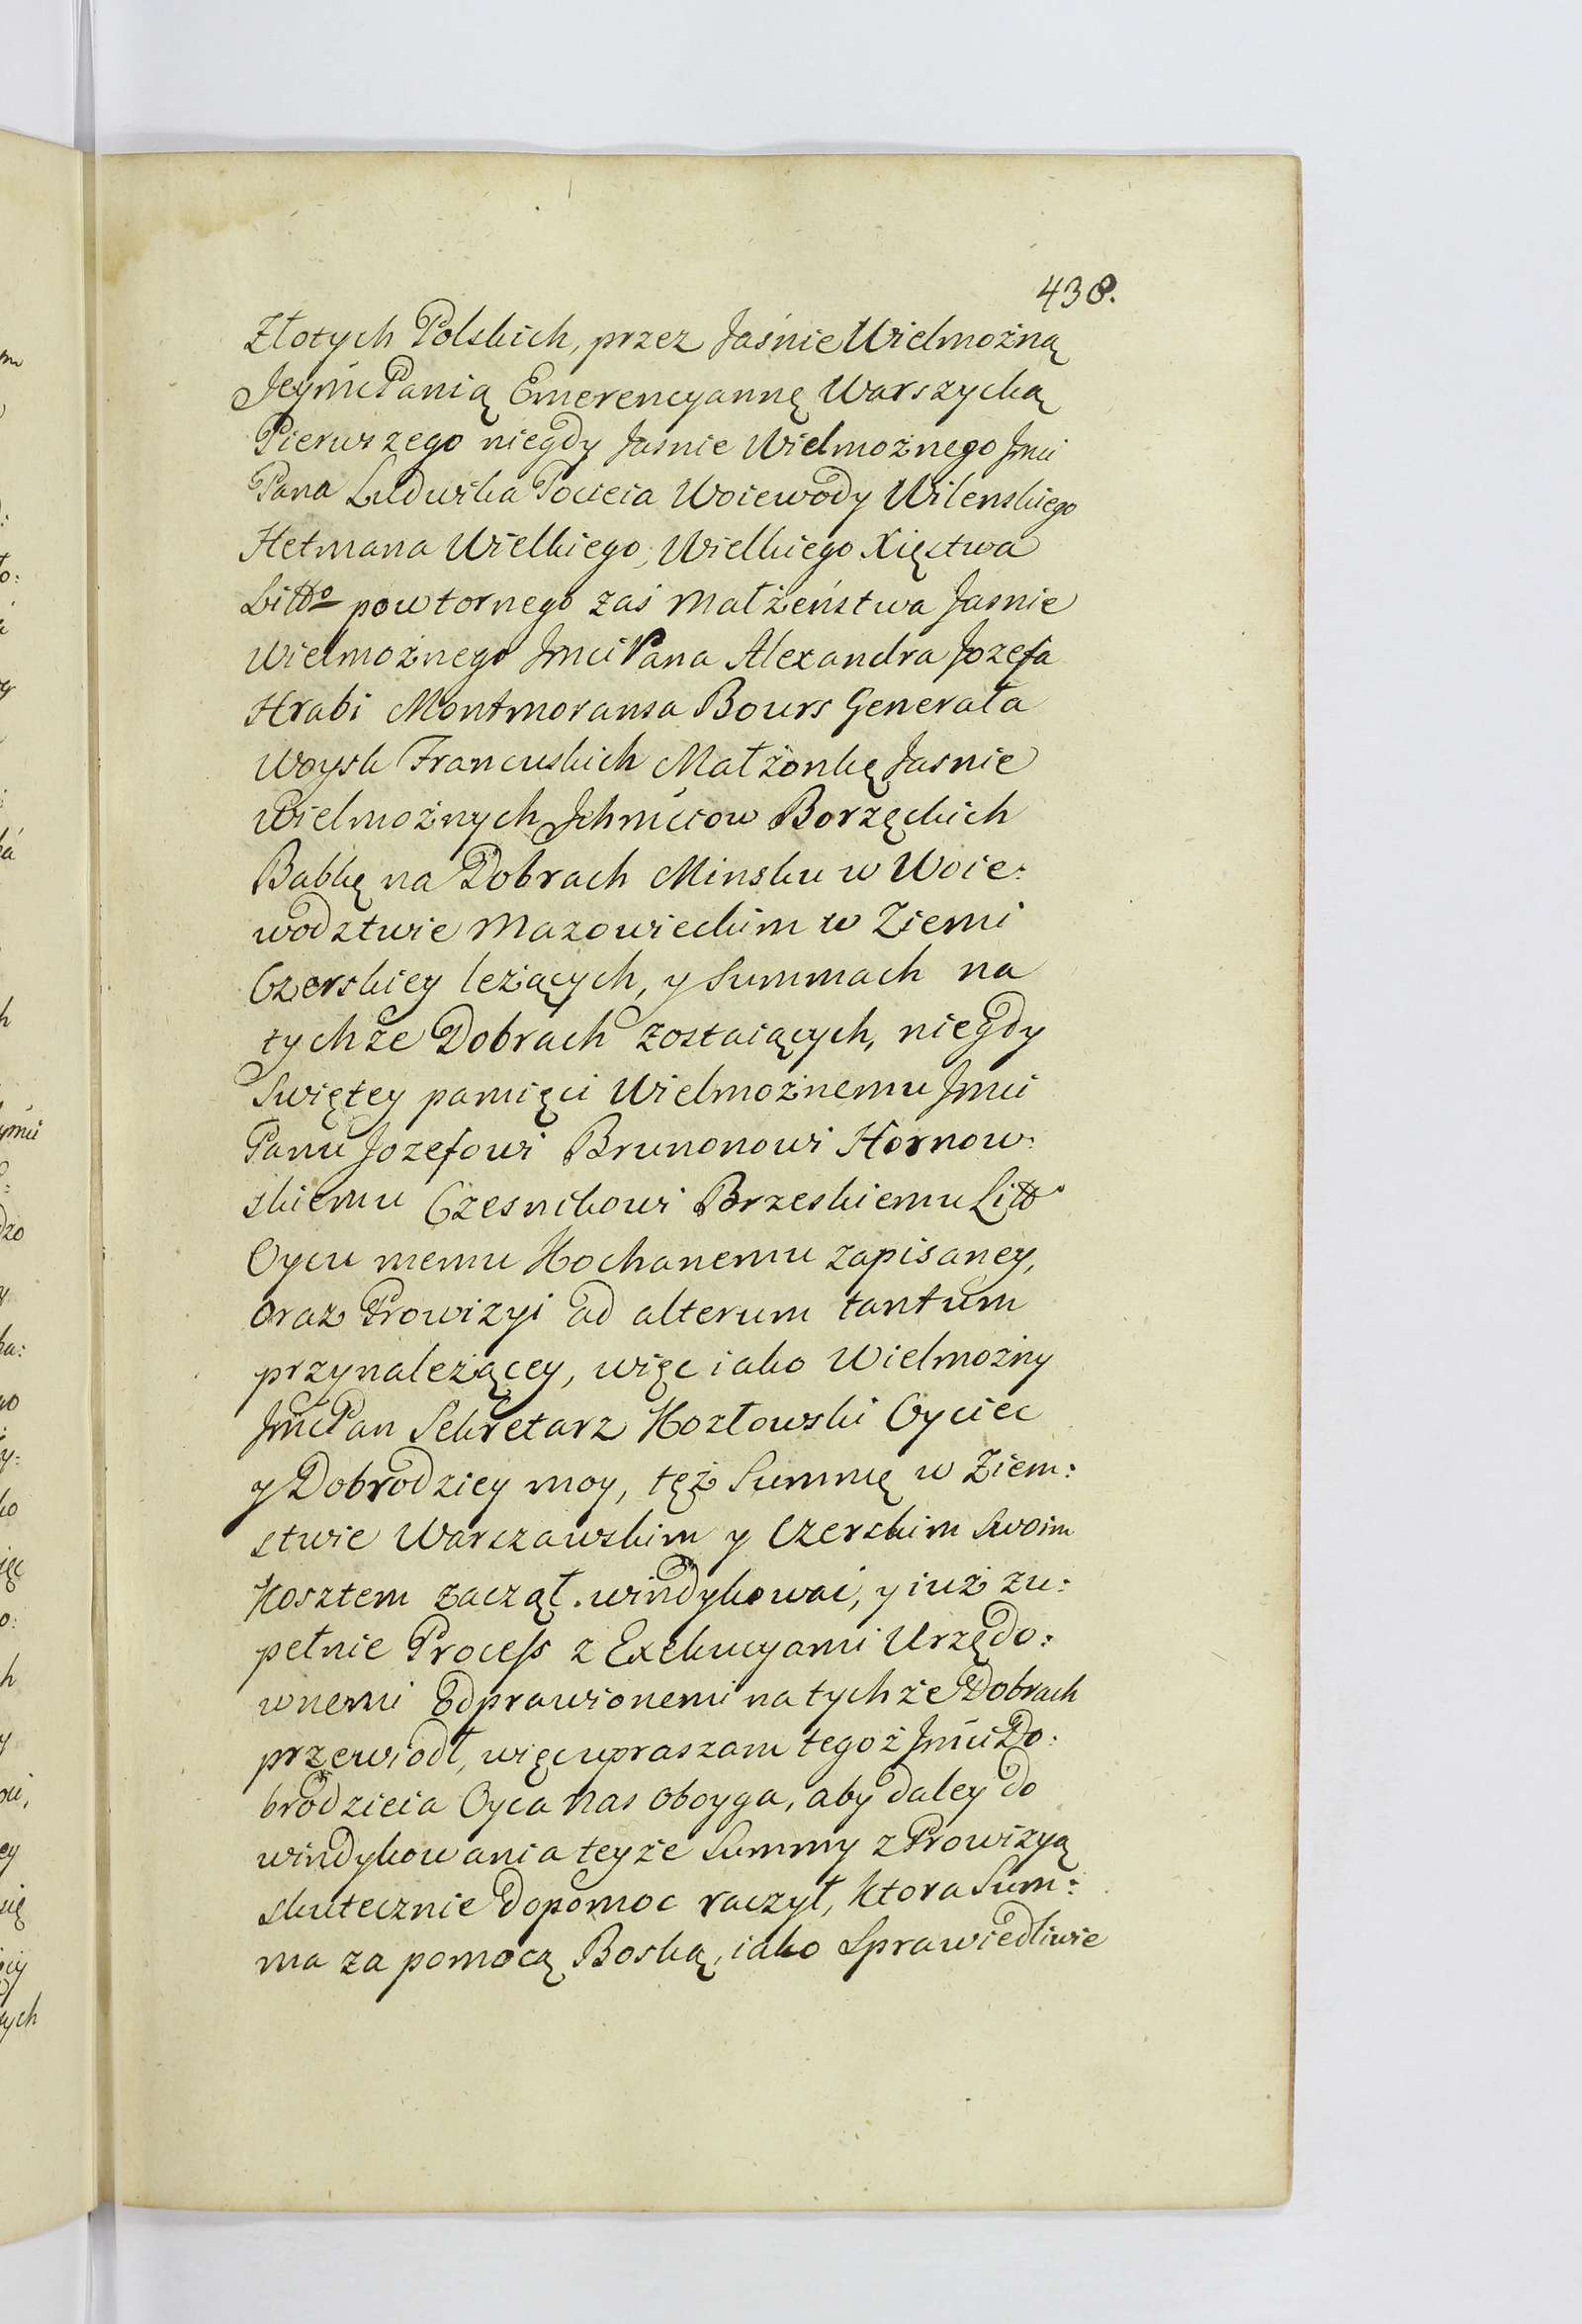 438.
Złotych Polskich, przez Jaśnie Wielmożną
JeymćPanią Emerencyannę Warszycką
Pierwszego niegdy Jasnie Wielmożnego Jmci
Pana Ludwika Pocieia Woiewody Wilenskiego
Hetmana Wielkiego, Wielkiego Xięstwa
Litto powtornego zaś Małżeństwa Jasnie
Wielmożnego Jmci Pana Alexandra Jozefa
Hrabi Montmoransa Bours Generała
Woysk Francuskich Małżonkę Jasnie
Wielmożnych Jchmciow Borzęckich
Babkę na Dobrach Minsku w Woie:
wodztwie Mazowieckim w Ziemi
Czerskiey leżących, y Summach na
tychże Dobrach zostaiących, niegdy
Swiętey pamięci Wielmożnemu Jmci
Panu Jozefowi Brunonowi Hornow:
skiemu Czesnikowi Brzeskiemu Litto
Oycu memu Kochanemu zapisaney,
oraz Prowizyi ad alterum tantum
przynależącey, więc iako Wielmożny
JmćPan Sekretarz Kozłowski Oyciec
y Dobrodziey moy, tęż Summę w Ziem:
stwie Warszawskim y Czerskim Swoim
Kosztem zaczął windykować, y iuż zu:
pełnie Process z Exekucyami Urzędo:
wnemi Odprawionemi na tychże Dobrach
przewiodł, więc upraszam tegoż Jmci Do:
brodzieia Oyca nas oboyga, aby daley do
windykowania teyże Summy z Prowizyą
skutecznie dopomoc raczył, ktora Sum:
ma za pomocą Boską, iako Sprawiedliwie